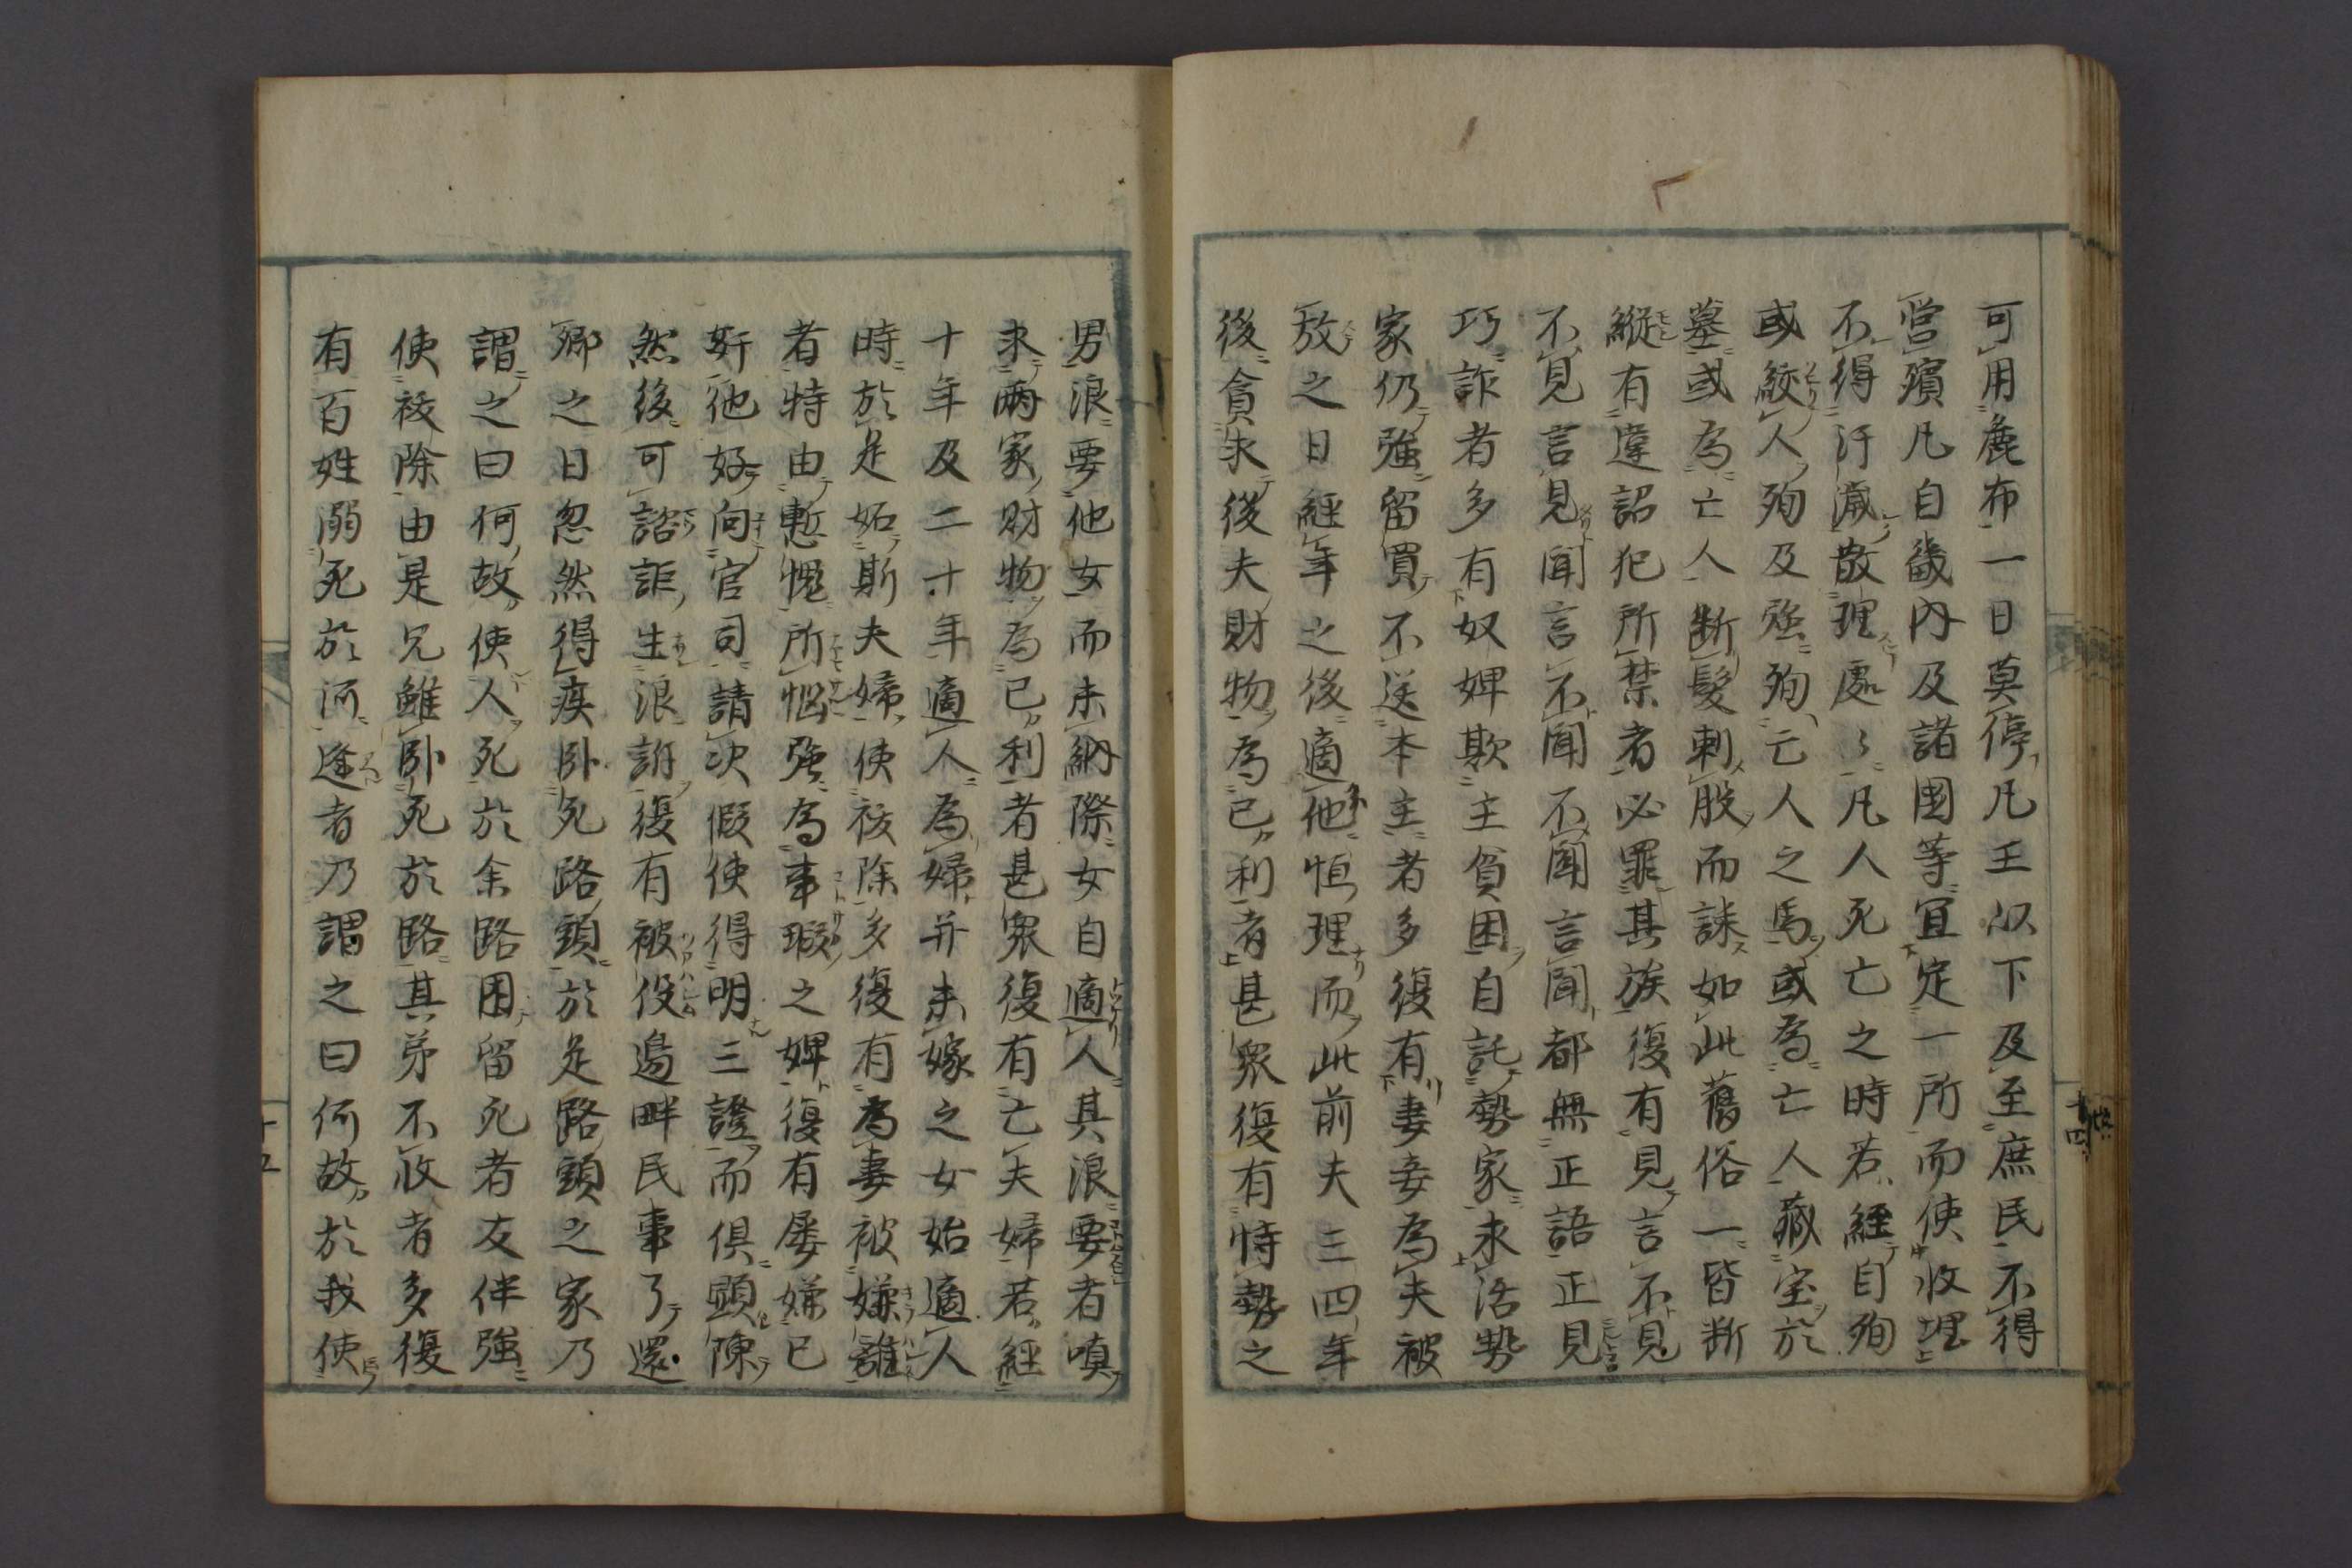 可用麁布一日莫停凡王以下及至庶民不得
営殯凡自畿内及諸国等宜定一所而使収埋
不得汙濊散埋處々凡人死亡之時若経自殉
或絞人殉及強殉亡人之馬或為亡人藏宝於
墓或為亡人断髪刺股而誄如此舊俗一皆断
縦有違詔犯所禁者必罪其族復有見言不見
不見言見聞言不聞不聞言聞都無正語正見
巧詐者多有奴婢欺主貧困自託勢家求活勢
家仍強留買不送本主者多復有妻妾為夫被
放之日経年之後適他恒理而此前夫三四年
後貪求後夫財物為己利者甚衆復有恃勢之
男浪要他女而未納際女自適人其浪要者嗔
求両家財物為己利者甚衆復有亡夫婦若経
十年及二十年適人為婦并未嫁之女始適人
時於是妬斯夫婦使祓除多復有為妻被嫌離
者特由慙愧所悩強為事瑕之婢復有屡嫌己
奸他好向官司請决假使得明三證而倶顕陳
然後可諮詎生浪訴復有被役邊畔民事了還
郷之日忽然得疾卧死路頭於是路頭之家乃
謂之曰何故使人死於余路因留死者友伴強
使祓除由是兄雖卧死於路其弟不収者多復
有百姓溺死於河逢者乃謂之曰何故於我使
十四
十五